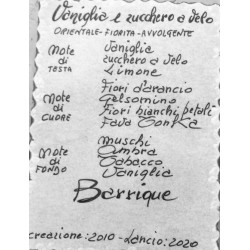 Vaniglia e zucchero a velo
ORIENTALE-FIORITA-AVVOLGENTE
Note di TESTA
Vaniglia
zucchero a velo
Limone
Note di CUORE
Fiori d'arancio
Gelsomino
Fiori bianchi petali
Fava Tonka
Note di FONDO
muschi
Ambra
Tabacco
Vaniglia
Barrique
creazione:2010-Lancio:2020